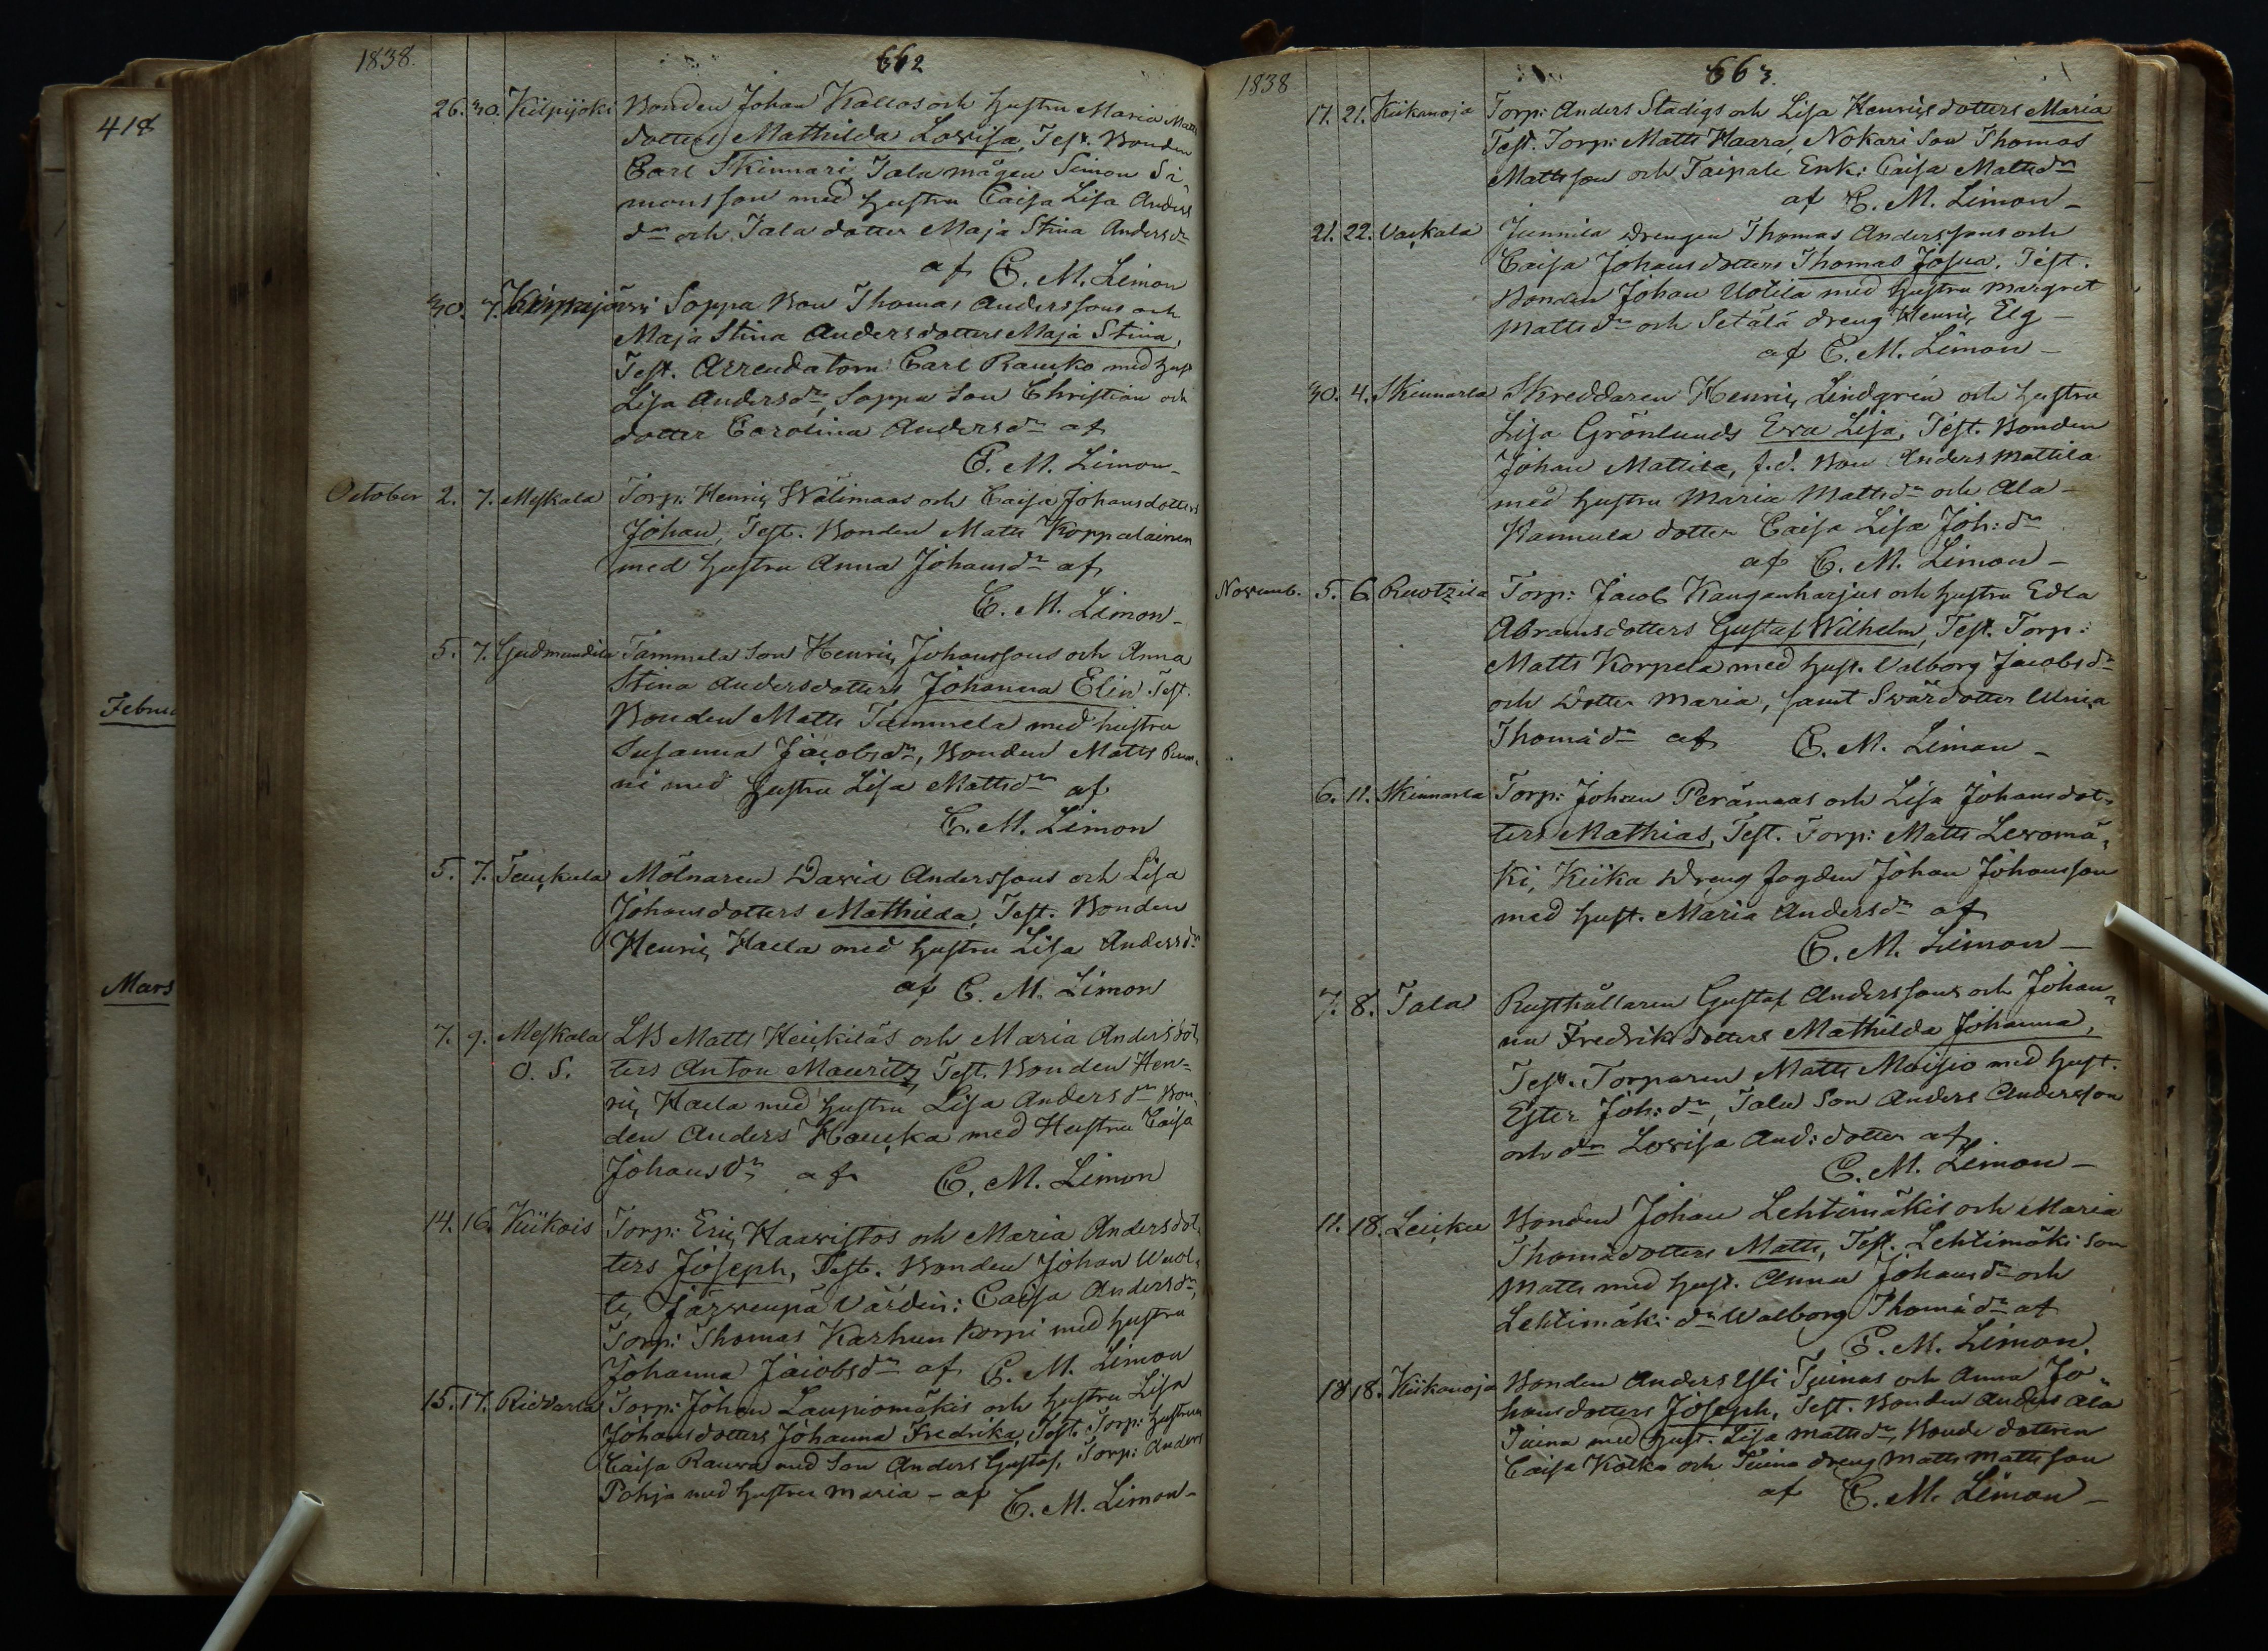 418
Februa
Mars
1838.
662
26. 30. Kilpijoki Bonden Johan Kallos och hustru Maria Matts
dotters Mathilda Lovisa, Test. Bonden
Carl Skinnari, Tala mågen Simon Si
monsson med hustru Caisa Lisa Anders
dr och Tala dotter Maja Stina Andersdr
af C. M. Limon
30. 7. Soppa Bon Thomas Anderssons och
Maja Stina Andersdotters Maja Stina,
Test. Arrendatorn Carl Rauko med hust
Lisa Andersdr, Soppa Son Christian och
dotter Carolina Andersdr af
C. M. Limon
October 2. 7. Meskala Torp: Henric Wälimaas och Caisa Johansdotters
Johan, Test. Bonden Matts Koppalainen
med hustru Anna Johansdr af
C. M. Limon
5. 7. Gudmundila Tammela Son Henric Johanssons och Anna
Stina Andersdotters Johanna Elin. Test.
Bonden Matts Tammela med hustru
Susanna Jacobsdr, Bonden Matts
ni med hustru Lisa Mattsdr af
C. M. Limon
5. 7. Mölnaren David Anderssons och Lisa
Johansdotters Mathilda, Test. Bonden
Henric Haela med hustru Lisa Andersdr
af C. M. Limon
7. 9. Meskala LB Matts Heickiläs och Maria Andersdot
O. S. ters Anton Mauritz, Test. Bonden Hen=
ric Haela med hustru Lisa Andersdr Bon
den Anders Hauka med Hustru Caisa
Johansdr af C. M. Limon
14. 16. Kiikois Torp: Eric Haavistos och Maria Andersdot
ters Joseph, Test. Bonden Johan Wuol
te, Järvenpä Värdin: Caisa Andersdr,
Torp: Thomas Karhun korpi med hustru
Johanna Jacobsdr af C. M. Limon
15. 17. Riddarla Torp: Johan Laupiomäkis och hustru Lisa
Johansdotters Johanna Fredrika, Test. Torp: hustrun
Caisa Rauva med Son Anders Gustaf, Torp: Anders
Pohja med hustru Maria - af C. M. Limon -
1838
663.
17. 21. Kiikanoja Torp: Anders Stadigs och Lisa Henricsdotters Maria
Test. Torp: Matts Haara, Nokari Son Thomas
Mattsson och Taipale Enk: Caisa Mattsdr
af C. M. Limon -
21. 22. Vackala Junnila Drengen Thomas Anderssons och
Caisa Johansdotters Thomas Josua. Test.
Bonden Johan Uotila med hustru Margret
Mattsdr och Setälä dreng Henric Elg -
af C. M. Limon -
30. 4. Skinnarla Skreddaren Henric Lindgren och hustru
Lisa Grönlunds Eva Lisa, Test. Bonden
Johan Mattila, f.d. Bon Anders Mattila
med hustru Maria Mattsdr och Ala-
Hannula dotter Caisa Lisa Joh: dr
af C. M. Limon -
Novemb. 5. 6. Ruotzila Torp: Jacob Kanganharjus och hustru Edla
Abramsdotters Gustaf Wilhelm, Test. Torp:
Matts Korpela med hust. Valborg Jacobsdr
och Dotter Maria, samt Svärdotter Ulrica
Thomädr af C. M. Limon -
6. 11. Skinnarla Torp: Johan Perämaas och Lisa Johansdot=
ters Mathias, Test. Torp: Matts Levomä=
ki, Kiika Dreng fogden Johan Johansson
med hust. Maria Andersdr af
C. M. Limon -
7. 8. Tala Rusthållaren Gustaf Anderssons och Johan=
na Fredriksdotters Mathilda Johanna,
Test. Torparen Matts Moisio med hust.
Ester Joh: dr, Tala Son Anders Andersson
och dr Lovisa And: dotter af
C. M. Limon -
11. 18. Leicku Bonden Johan Lehtimäkis och Maria
Thomädotters Matts, Test. Lehtimäki Son
Matts med hust. Anna Johansdr och
Lehtimäki dr Walborg Thomädr af
C. M. Limon.
18 18. Kiikanoja Bonden Anders Yli Tuinas och Anna Jo=
hansdotters Joseph, Test. Bonden Anders Ala
Tuina med hust. Lisa Mattsdr, Bonde dottren
Caisa Kolka och Tuina dreng Matts Mattsson
af C. M. Limon -